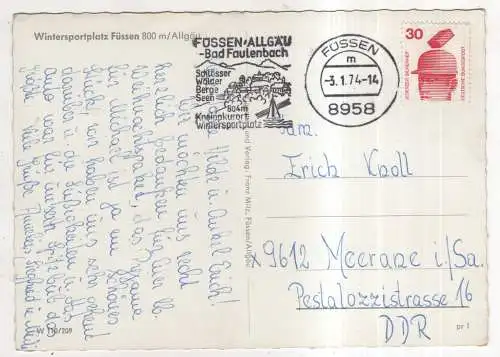 Wintersportplatz Füssen 800 m/Allgäu
FÜSSEN·ALLGÄU
-Bad Faulenbach
Schlösser
Wälder
Berge
Seen
804m
Kneippkurort
Wintersportplatz
FÜSSEN
m
-3.1.74-14
8958
30
DEUTSCHE BUNDESPOST
Liebe Hilde u. Onkel Erich!
möchten uns recht
herzlich bedanken für euer lb.
Weihnachtspaket, das Pyjama
für Michael ist ja ein schönes
Stück, wir haben uns sehr gefreut
darüber u. die Süßigkeiten u. das
Auto war die
Viele Grüße
und Verlag: Franz Milz, Füssen/Allgäu
W 110/209
Fam.
Erich Knoll
x 9612 Meerane i/Sa.
Pestalozzistrasse 16
DDR
pr 1